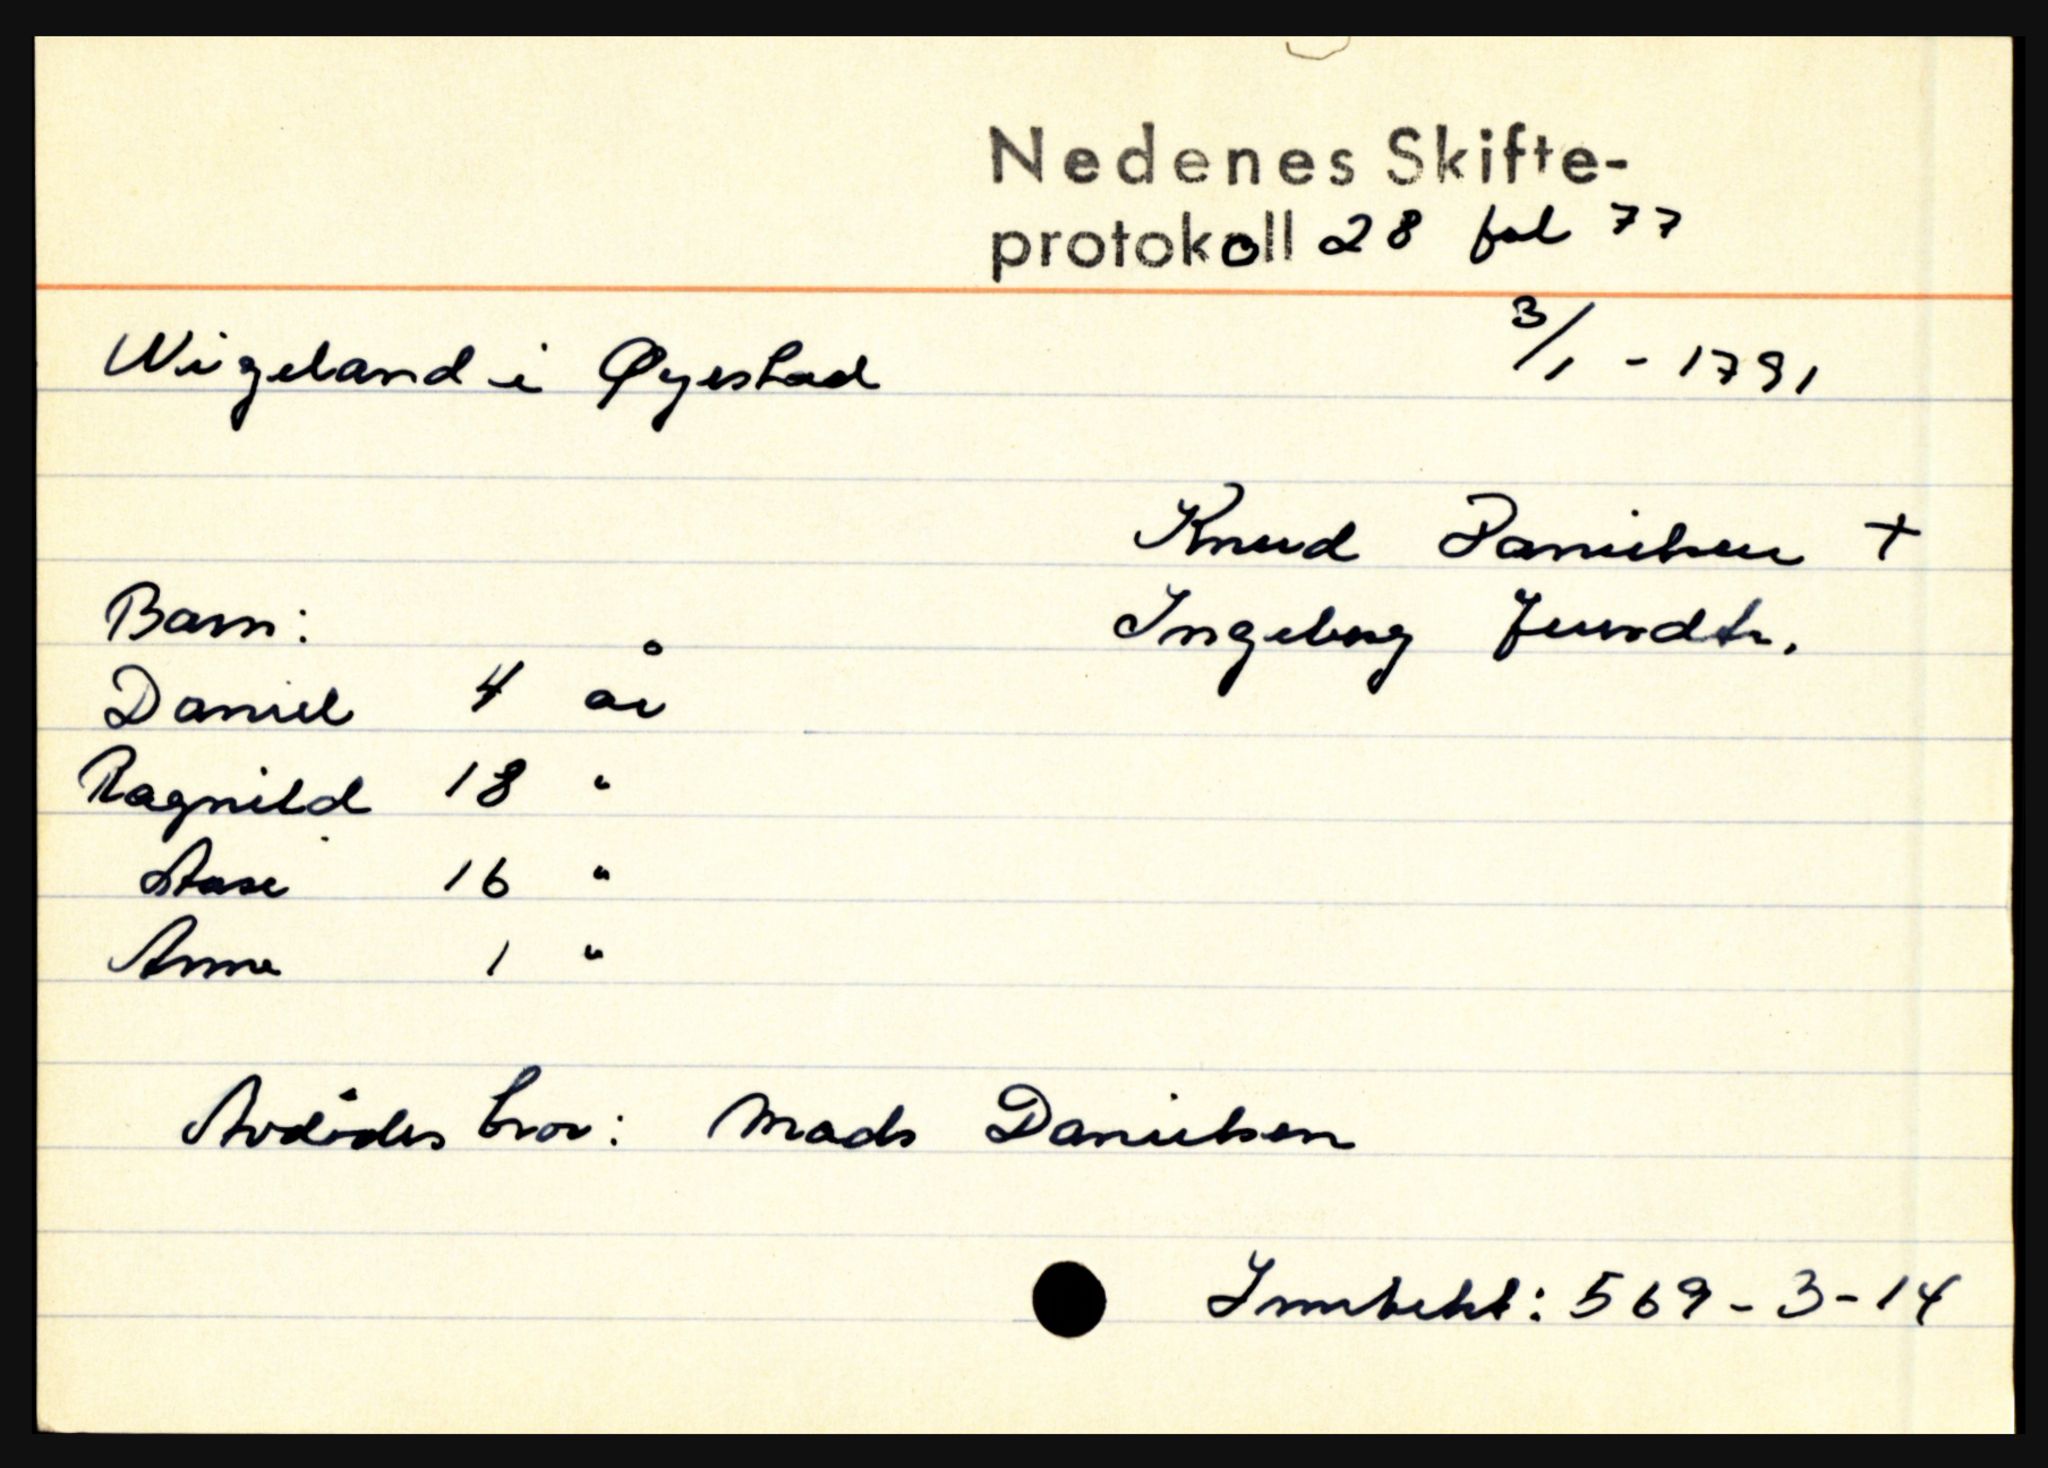 Nedenes Skifte-
protokoll 28 fol 77
Wigeland i Øyestad 3/1 - 1791
Knud Danielsen +
Barn: Ingeborg Juvrdtr.
Daniel 4 år
Ragnild 18 "
Aase 16 "
Anne 1 "
Avdødes bror: Mads Danielsen
Inntekt: 569-3-14